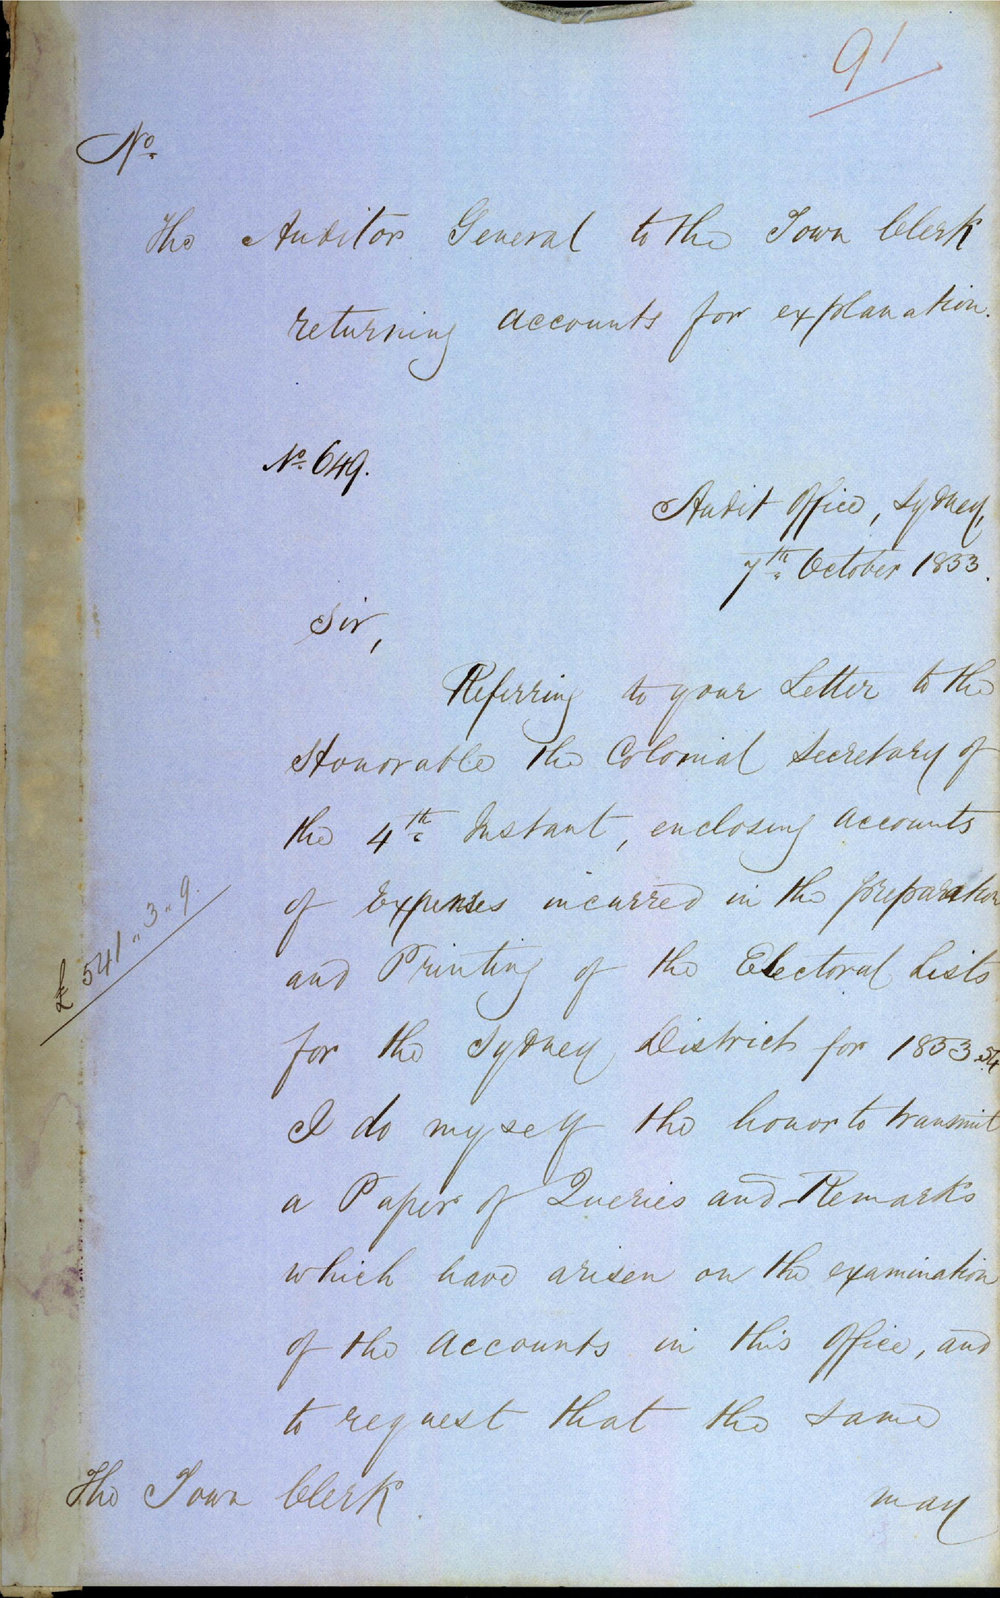 91
No.
The Auditor General to the Town Clerk
returning accounts for explanation.
No. 649.
Audit Office, Sydney,
7th October 1853.
Sir,
Referring to your Letter to the
Honorable the Colonial Secretary of
the 4th Instant, enclosing accounts
of Expenses incurred in the preparation
£541..3..9.
and Printing of the Electoral Lists
for the Sydney District for 1853.54
I do myself the honor to transmit
a Paper of Queries and Remarks
which have arisen on the examination
of the accounts in this Office, and
to request that the same
The Town Clerk.
may